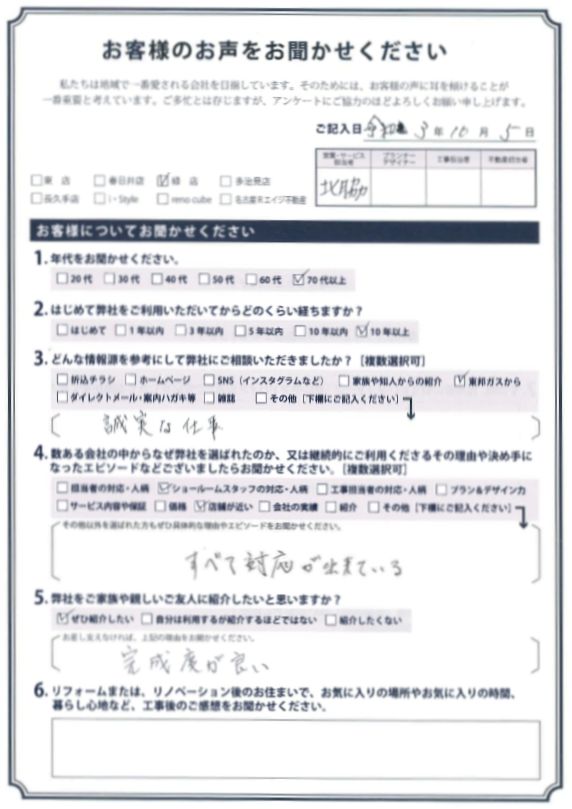 お客様のお声をお聞かせください
私たちは地域で一番愛される会社を目指しています。そのためには、お客様の声に耳を傾けることが
一番重要と考えています。ご多忙とは存じますが、アンケートにご協力のほどよろしくお願い申し上げます。
ご記入日 令和 3 年 10 月 5 日
営業・サービス担当者 プランナーデザイナー 工事担当者 不動産担当者
北脇
□東 店 □春日井店 ☑緑 店 □多治見店
□長久手店 □i・Style □reno cube □名古屋Rエイジ不動産
お客様についてお聞かせください
1. 年代をお聞かせください。
□20代 □30代 □40代 □50代 □60代 ☑70代以上
2. はじめて弊社をご利用いただいてからどのくらい経ちますか？
□はじめて □1年以内 □3年以内 □5年以内 □10年以内 ☑10年以上
3. どんな情報源を参考にして弊社にご相談いただきましたか？［複数選択可］
□折込チラシ □ホームページ □SNS（インスタグラムなど） □家族や知人からの紹介 ☑東邦ガスから
□ダイレクトメール・案内ハガキ等 □雑誌 □その他［下欄にご記入ください］
誠実な仕事
4. 数ある会社の中からなぜ弊社を選ばれたのか、又は継続的にご利用くださるその理由や決め手に
なったエピソードなどございましたらお聞かせください。［複数選択可］
□担当者の対応・人柄 ☑ショールームスタッフの対応・人柄 □工事担当者の対応・人柄 □プラン&デザイン力
□サービス内容や保証 □価格 ☑店舗が近い □会社の実績 □紹介 □その他［下欄にご記入ください］
その他以外を選ばれた方もぜひ具体的な理由やエピソードをお聞かせください。
すべて対応が出来ている
5. 弊社をご家族や親しいご友人に紹介したいと思いますか？
☑ぜひ紹介したい □自分は利用するが紹介するほどではない □紹介したくない
お差し支えなければ、上記の理由をお聞かせください。
完成度が良い
6. リフォームまたは、リノベーション後のお住まいで、お気に入りの場所やお気に入りの時間、
暮らし心地など、工事後のご感想をお聞かせください。